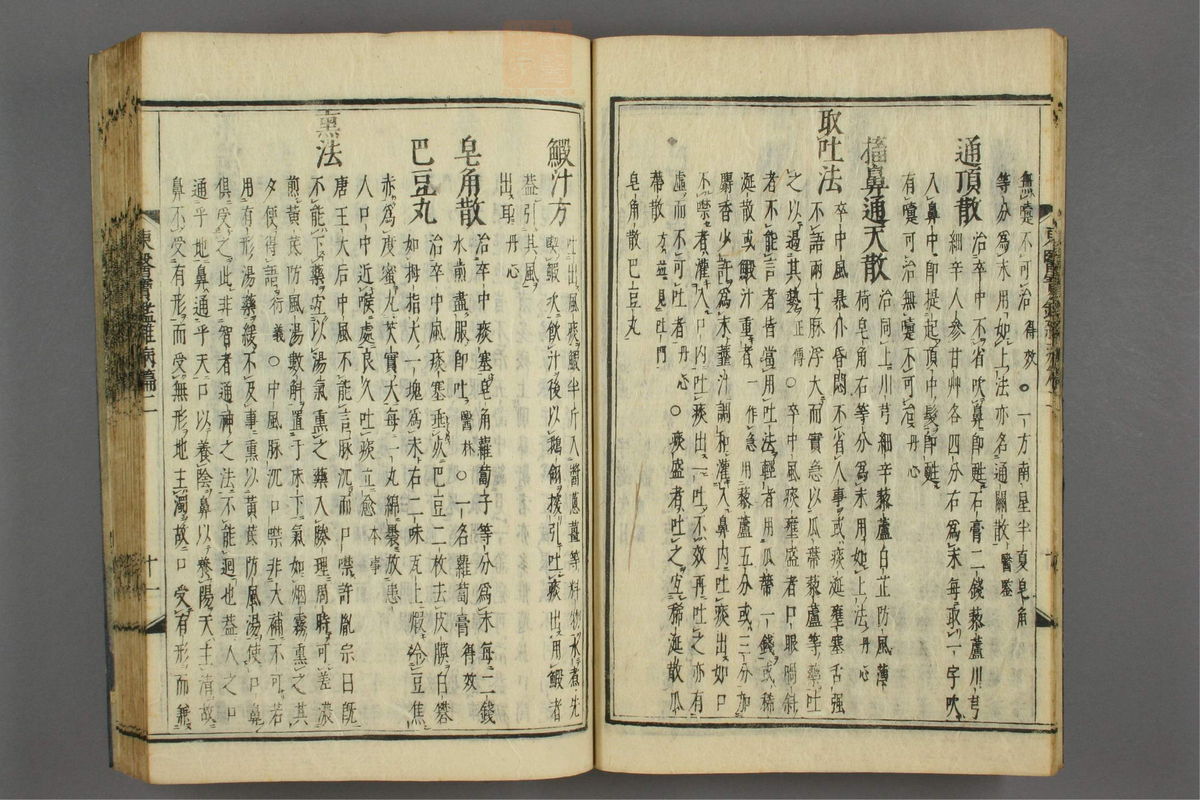 無嚔不可治得效○一方南星半夏皂角
等分爲末用如上法亦名通關散醫鑒
通頂散治卒中不省吹鼻即甦石膏二錢藜蘆川芎
細辛人參甘艸各四分右爲末每取一字吹
入鼻中即提起頂中髮即甦
有嚔可治無嚔不可治丹心
搐鼻通天散治同上川芎細辛藜蘆白芷防風薄
荷皂角右等分爲末用如上法丹心
取吐法卒中風暴仆昏悶不省人事或痰涎壅塞舌强
不語兩寸脉浮大而實急以瓜蒂藜蘆等藥吐
之以遏其勢正傳○卒中風痰壅盛者口眼喎斜
者不能言者皆當用吐法輕者用瓜蒂一錢或稀
涎散或鰕汁重者一作急用藜蘆五分或三分加
麝香少許爲末虀汁調和灌入鼻內吐痰出如口
不噤者灌入口內吐痰出一吐不效再吐之亦有
虛而不可吐者丹心○痰盛者吐之宜稀涎散瓜
蒂散方並見吐門
皂角散巴豆丸
鰕汁方吐出風痰鰕半斤入醬葱薑等料物水煮先
喫鰕次飲汁後以鵝翎探引吐痰出用鰕者
盖引其風
出耳丹心
皂角散治卒中痰塞皂角蘿蔔子等分爲末每二錢
水煎盡服即吐醫林○一名蘿蔔膏得效
巴豆丸治卒中風痰塞垂死巴豆二枚去皮膜白礬
如拇指大一塊爲末右二味瓦上煅令豆焦
赤爲度蜜丸芡實大每一丸綿褁放患
人口中近喉處良久吐痰立愈本事
熏法唐王大后中風不能言脉沉而口噤許胤宗曰旣
不能下藥宜以湯氣熏之藥入腠理周時可差濃
煎黃芪防風湯數斛置于床下氣如烟霧熏之其
夕便得語衍義○中風脉沉口噤非大補不可若
用有形湯藥緩不及事熏以黃芪防風湯使口鼻
俱受之此非智者通神之法不能迴也盖人之口
通乎地鼻通乎天口以養陰鼻以養陽天主清故
鼻不受有形而受無形地主濁故口受有形而兼
東醫寶鑑雜病篇二
十一